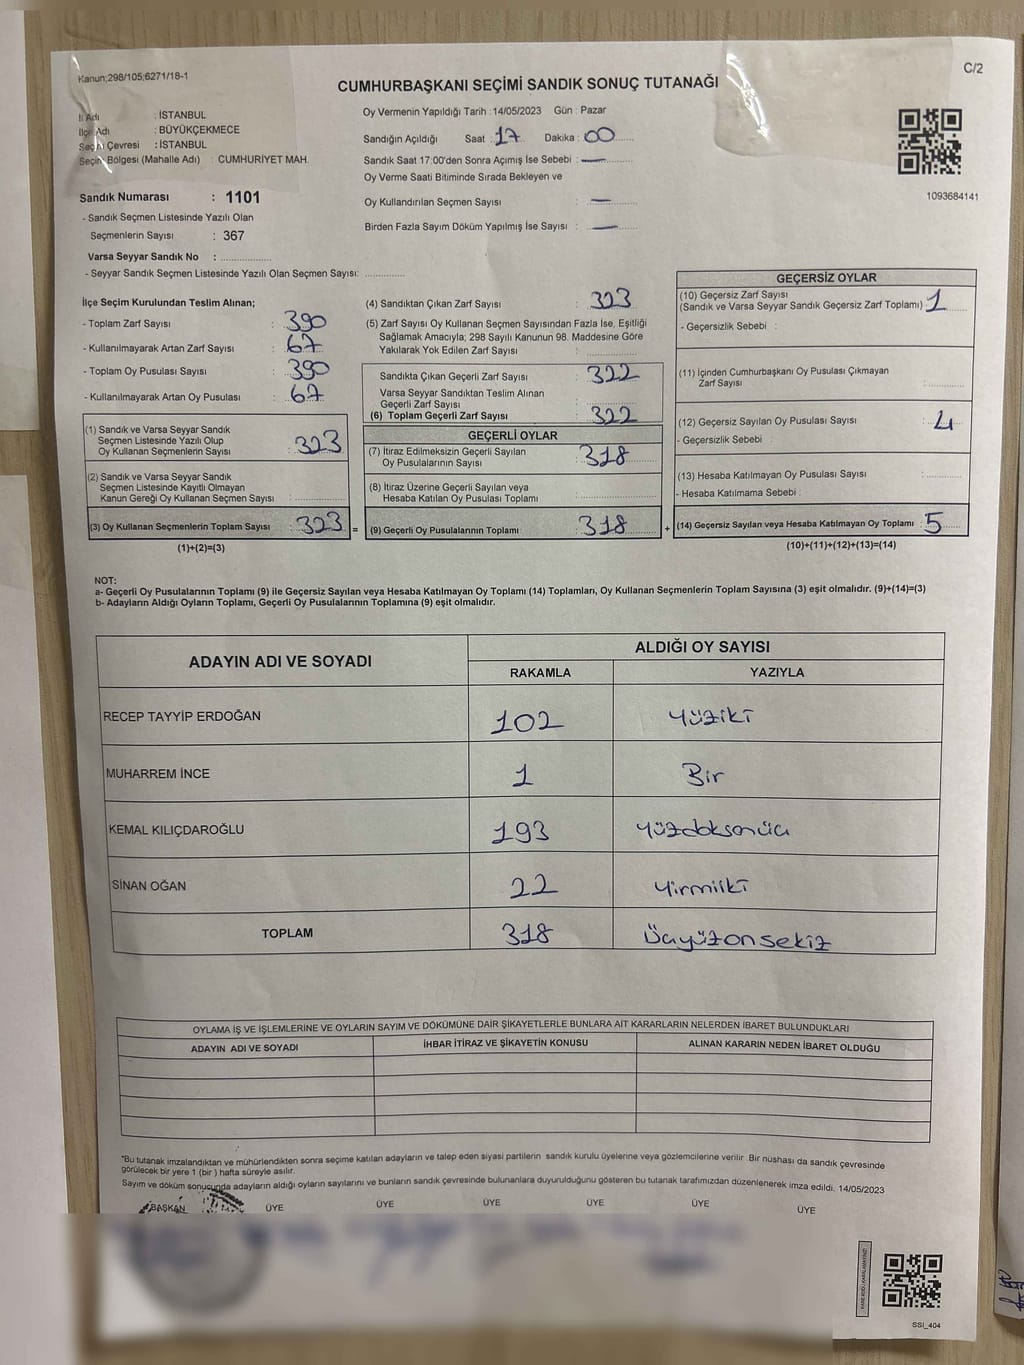 Kanun;298/105;6271/18-1
C/2
CUMHURBAŞKANI SEÇİMİ SANDIK SONUÇ TUTANAĞI
İl Adı : İSTANBUL
İlçe Adı : BÜYÜKÇEKMECE
Seçim Çevresi : İSTANBUL
Seçim Bölgesi (Mahalle Adı) : CUMHURİYET MAH.
Sandık Numarası : 1101
- Sandık Seçmen Listesinde Yazılı Olan
Seçmenlerin Sayısı : 367
Varsa Seyyar Sandık No :
- Seyyar Sandık Seçmen Listesinde Yazılı Olan Seçmen Sayısı:
Oy Vermenin Yapıldığı Tarih : 14/05/2023 Gün : Pazar
Sandığın Açıldığı Saat : 17 Dakika : 00
Sandık Saat 17:00'den Sonra Açılmış İse Sebebi : —
Oy Verme Saati Bitiminde Sırada Bekleyen ve
Oy Kullandırılan Seçmen Sayısı : —
Birden Fazla Sayım Döküm Yapılmış İse Sayısı : —
1093684141
İlçe Seçim Kurulundan Teslim Alınan;
- Toplam Zarf Sayısı : 390
- Kullanılmayarak Artan Zarf Sayısı : 67
- Toplam Oy Pusulası Sayısı : 390
- Kullanılmayarak Artan Oy Pusulası : 67
(1) Sandık ve Varsa Seyyar Sandık
Seçmen Listesinde Yazılı Olup
Oy Kullanan Seçmenlerin Sayısı : 323
(2) Sandık ve Varsa Seyyar Sandık
Seçmen Listesinde Kayıtlı Olmayan
Kanun Gereği Oy Kullanan Seçmen Sayısı :
(3) Oy Kullanan Seçmenlerin Toplam Sayısı : 323
(1)+(2)=(3)
=
(4) Sandıktan Çıkan Zarf Sayısı : 323
(5) Zarf Sayısı Oy Kullanan Seçmen Sayısından Fazla İse, Eşitliği
Sağlamak Amacıyla; 298 Sayılı Kanunun 98. Maddesine Göre
Yakılarak Yok Edilen Zarf Sayısı :
Sandıkta Çıkan Geçerli Zarf Sayısı : 322
Varsa Seyyar Sandıktan Teslim Alınan
Geçerli Zarf Sayısı :
(6) Toplam Geçerli Zarf Sayısı : 322
GEÇERLİ OYLAR
(7) İtiraz Edilmeksizin Geçerli Sayılan
Oy Pusulalarının Sayısı : 318
(8) İtiraz Üzerine Geçerli Sayılan veya
Hesaba Katılan Oy Pusulası Toplamı :
(9) Geçerli Oy Pusulalarının Toplamı : 318
+
GEÇERSİZ OYLAR
(10) Geçersiz Zarf Sayısı
(Sandık ve Varsa Seyyar Sandık Geçersiz Zarf Toplamı) : 1
- Geçersizlik Sebebi :
(11) İçinden Cumhurbaşkanı Oy Pusulası Çıkmayan
Zarf Sayısı :
(12) Geçersiz Sayılan Oy Pusulası Sayısı : 4
- Geçersizlik Sebebi :
(13) Hesaba Katılmayan Oy Pusulası Sayısı :
- Hesaba Katılmama Sebebi :
(14) Geçersiz Sayılan veya Hesaba Katılmayan Oy Toplamı : 5
(10)+(11)+(12)+(13)=(14)
NOT:
a- Geçerli Oy Pusulalarının Toplamı (9) ile Geçersiz Sayılan veya Hesaba Katılmayan Oy Toplamı (14) Toplamları, Oy Kullanan Seçmenlerin Toplam Sayısına (3) eşit olmalıdır. (9)+(14)=(3)
b- Adayların Aldığı Oyların Toplamı, Geçerli Oy Pusulalarının Toplamına (9) eşit olmalıdır.
ADAYIN ADI VE SOYADI
ALDIĞI OY SAYISI
RAKAMLA YAZIYLA
RECEP TAYYİP ERDOĞAN 102 Yüziki
MUHARREM İNCE 1 Bir
KEMAL KILIÇDAROĞLU 193 Yüzdoksanüç
SİNAN OĞAN 22 Yirmiiki
TOPLAM 318 Üçyüzonsekiz
OYLAMA İŞ VE İŞLEMLERİNE VE OYLARIN SAYIM VE DÖKÜMÜNE DAİR ŞİKAYETLERLE BUNLARA AİT KARARLARIN NELERDEN İBARET BULUNDUKLARI
ADAYIN ADI VE SOYADI İHBAR İTİRAZ VE ŞİKAYETİN KONUSU ALINAN KARARIN NEDEN İBARET OLDUĞU
*Bu tutanak imzalandıktan ve mühürlendikten sonra seçime katılan adayların ve talep eden siyasi partilerin sandık kurulu üyelerine veya gözlemcilerine verilir. Bir nüshası da sandık çevresinde
görülecek bir yere 1 (bir) hafta süreyle asılır.
Sayım ve döküm sonucunda adayların aldığı oyların sayılarını ve bunların sandık çevresinde bulunanlara duyurulduğunu gösteren bu tutanak tarafımızdan düzenlenerek imza edildi. 14/05/2023
BAŞKAN ÜYE ÜYE ÜYE ÜYE ÜYE ÜYE
SSI_404